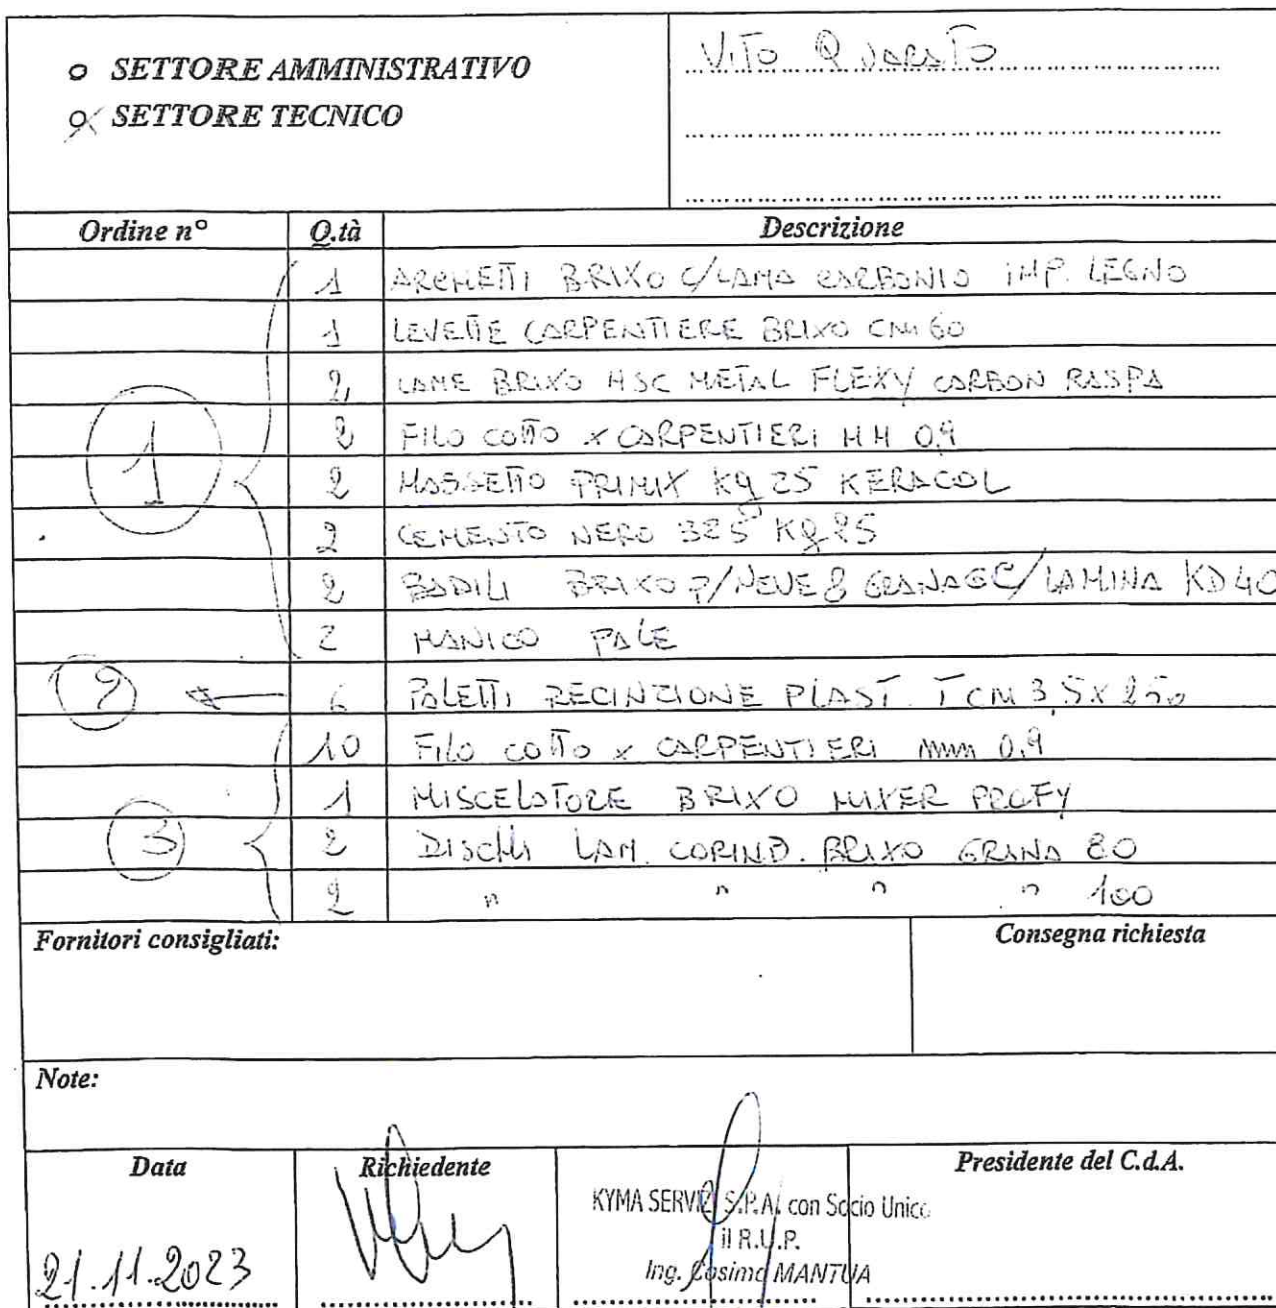 o SETTORE AMMINISTRATIVO
o SETTORE TECNICO
VITO QUARATO
Ordine n° Q.tà Descrizione
1 ARCHETTI BRIXO C/LAMA CARBONIO IMP. LEGNO
1 LEVETTE CARPENTIERE BRIXO CM 60
2 LAME BRIXO HSC METAL FLEXY CARBON RASPA
1
2 FILO COTTO x CARPENTIERI MM 0,9
2 MASSETTO PRIMIX Kg 25 KERACOL
2 CEMENTO NERO 325 Kg 25
2 BADILI BRIXO P/NEVE & GRANAGL C/LAMINA KD 40
2 MANICO PALE
2 6 PALETTI RECINZIONE PLAST. T CM 3,5 x 250
10 FILO COTTO x CARPENTIERI mm 0,9
1 MISCELATORE BRIXO MIXER PROFY
3 2 DISCHI LAM. CORIND. BRIXO GRANA 80
2 " " " " 100
Fornitori consigliati: Consegna richiesta
Note:
Data Richiedente Presidente del C.d.A.
KYMA SERVIZI S.P.A. con Socio Unico
il R.U.P.
Ing. Cosimo MANTUA
21.11.2023